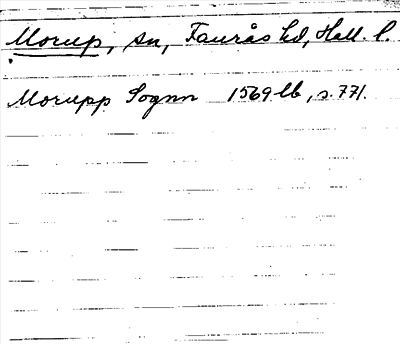 Morup, sn, Faurås hd, Hall. l.
Morupp Sognn 1569 lb, s. 771.